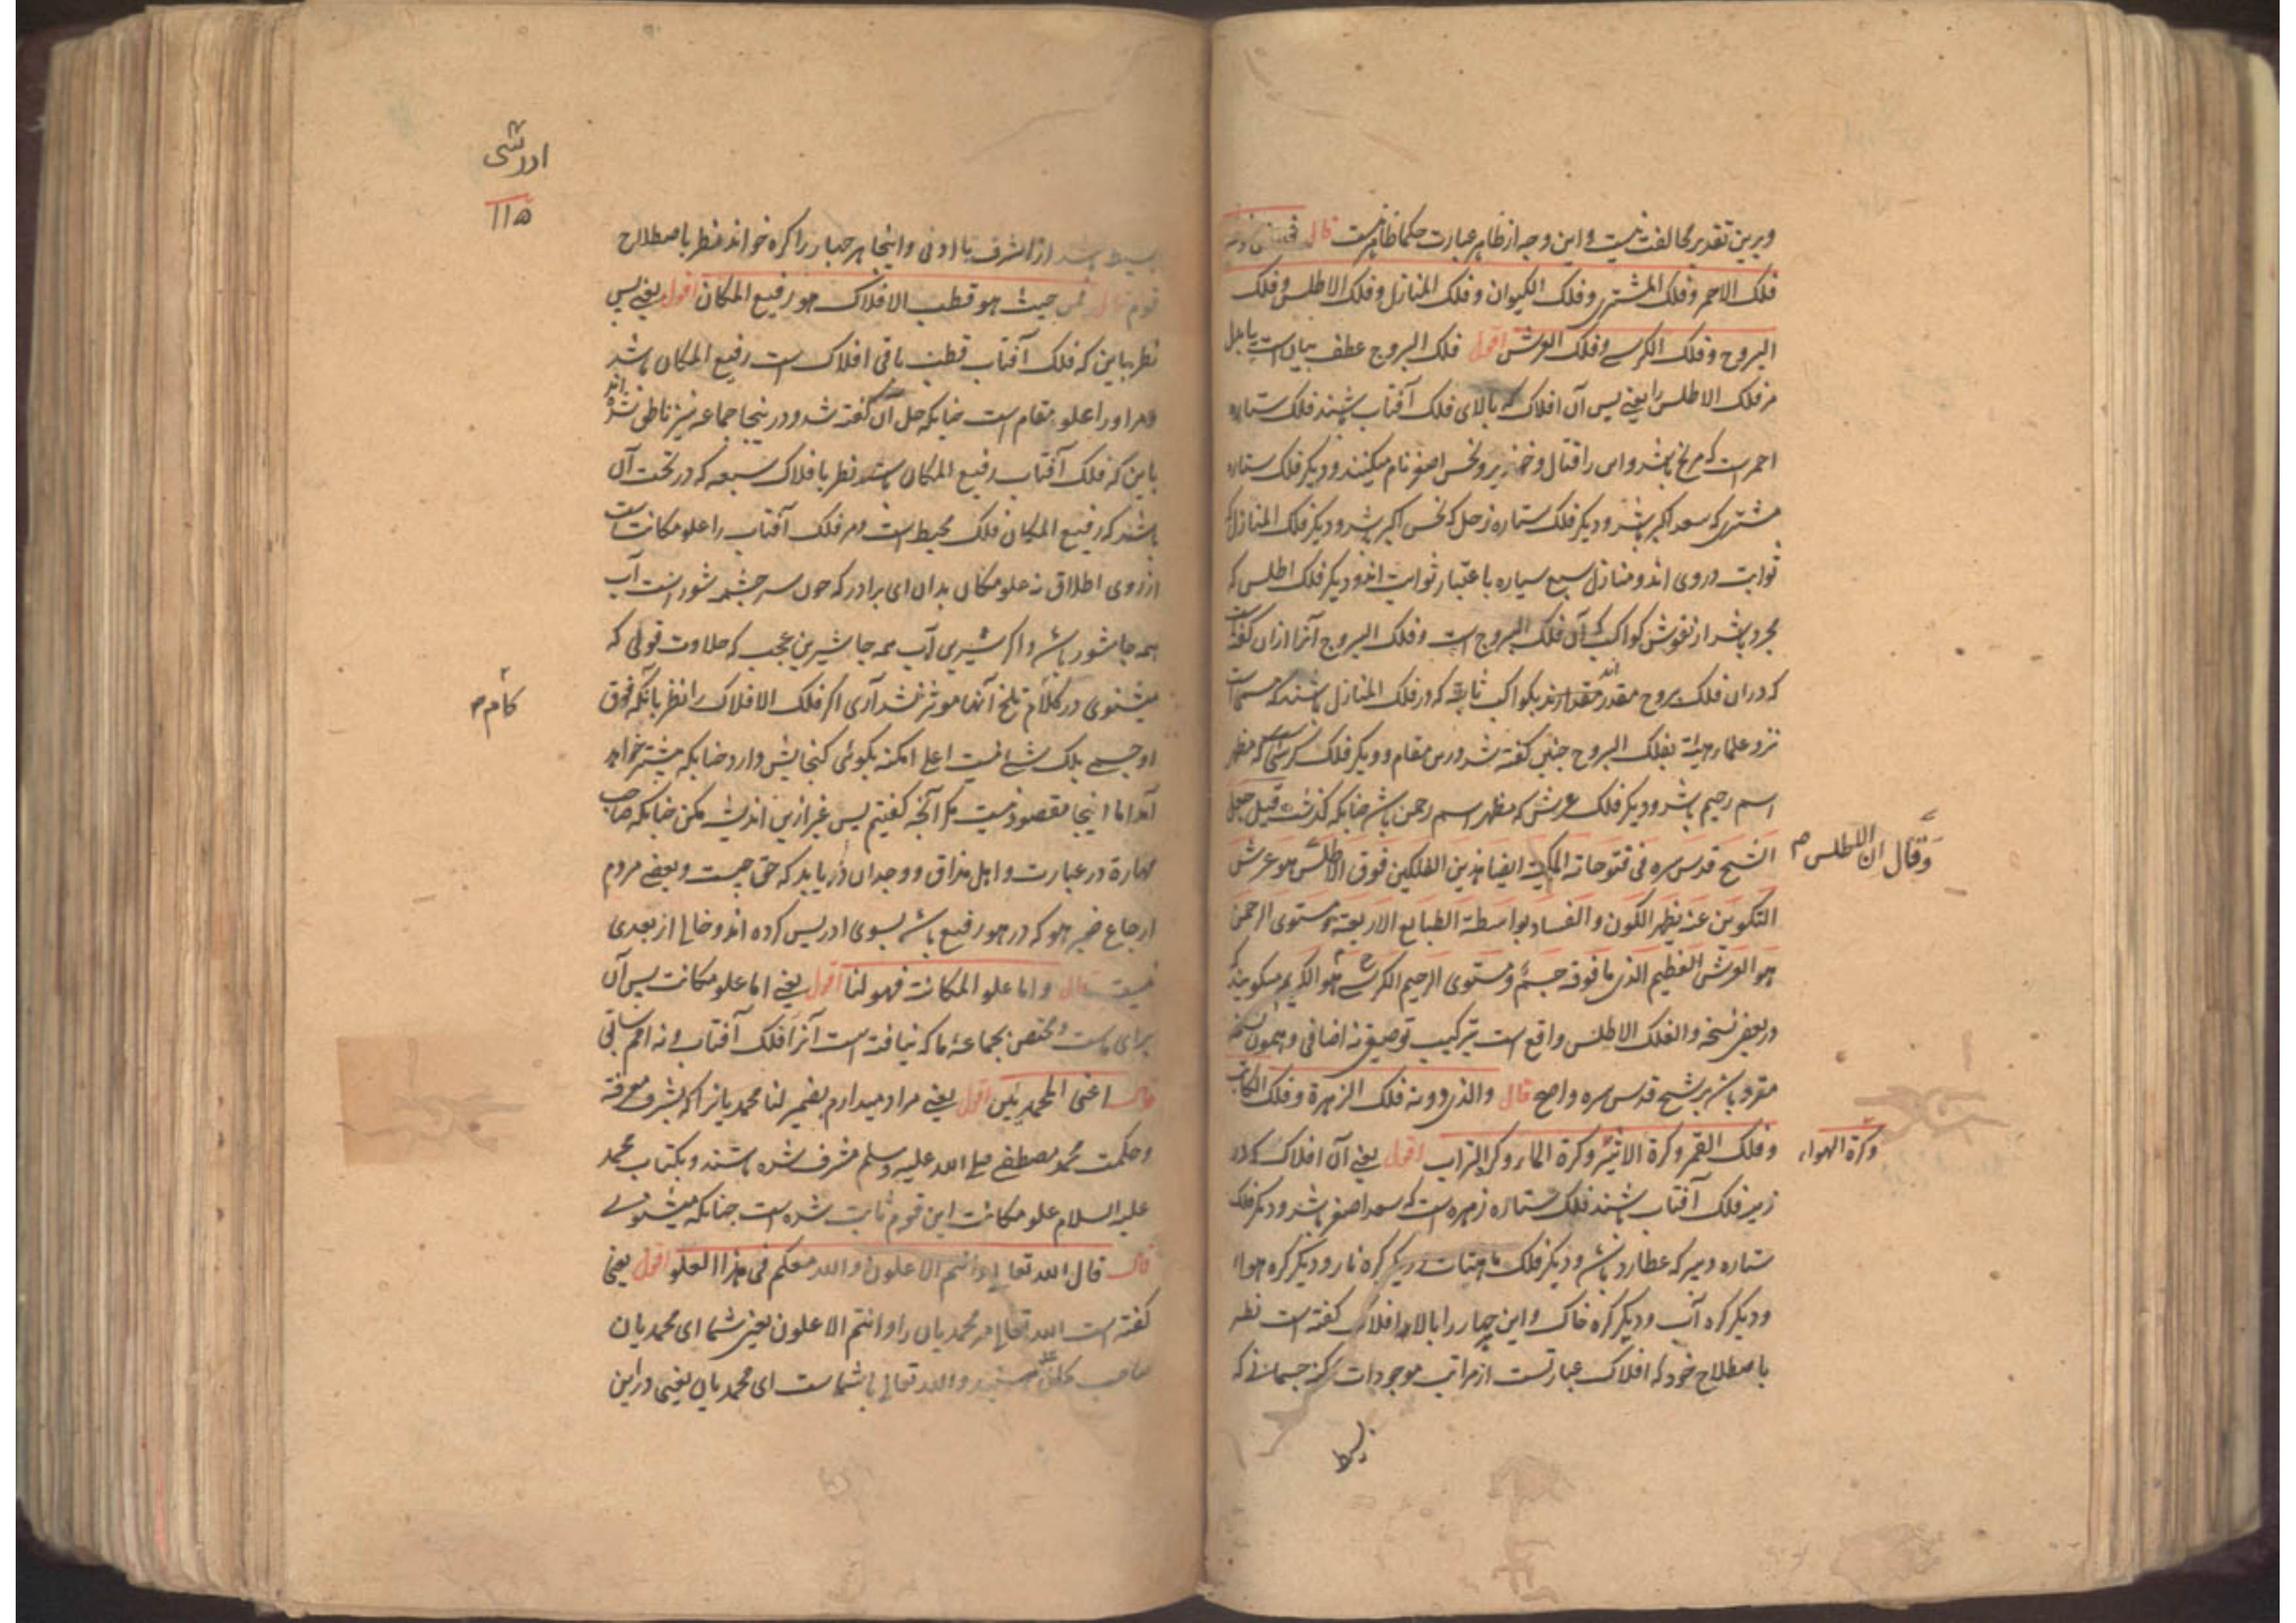 وبرین تقدیر مخالفت نیست و این وجه از ظاهر عبارت حکما ظاهر نیست قال
فلک الاحمر و فلک المشتری و فلک الکیوان و فلک المنازل و فلک الاطلس و فلک
البروج و فلک الکرسے و فلک العرش اقول فلک البروج عطف بیان است یا بدل
مر فلک الاطلس را یعنے پس آن افلاک که بالای فلک آفتاب باشند فلک ستاره
احمر است که مریخ باشد و اس را قتال و خونریز و نحس اصغر نام میکنند و دیگر فلک ستاره
مشتری که سعد اکبر باشد و دیگر فلک ستاره زحل که نحس اکبر باشد و دیگر فلک المنازل که
ثوابت دروی اند و منازل سبع سیاره باعتبار ثوابت اند و دیگر فلک اطلس که
مجرد باشد از نقوش کواکب که آن فلک البروج است و فلک البروج آنرا ازان گفته است
که دران فلک بروج مقدر اند بکواکب ثابته که در فلک المنازل باشند که مسماست
نزد علماء هیئة بفلک البروج چنین گفته شد درین مقام و دیگر فلک کرسی است که مظهر
اسم رحیم باشد و دیگر فلک عرش که مظهر اسم رحمن باشد چنانکه گذشت قیل جعل
الشیخ قدس سره فی فتوحاته المکیة ایضا هذین الفلکین فوق الاطلس هو عرش
وقال ان الاطلس
التکوین عنه یظهر الکون و الفساد بواسطة الطبایع الاربعة و مستوی الرحمن
هو العرش العظیم الذی ما فوقه جسم و مستوی الرحیم الکرسے هو الکریم میگویند که
در بعض نسخه و الفلک الاطلس واقع است بترکیب توصیفی نه اضافی و همون نسخه
مقرو باشد بر شیخ قدس سره و اصح قال و الذی دونه فلک الزهرة و فلک الکاتب
و فلک القمر و کرة الاثیر و کرة الماء و کرة التراب اقول یعنے آن افلاک که در
وکرة الهواء
زیر فلک آفتاب باشند فلک ستاره زهره است که سعد اصغر باشد و دیگر فلک
ستاره دبیر که عطارد باشد و دیگر فلک ماهتاب و دیگر کره نار و دیگر کره هواء
و دیگر کره آب و دیگر کره خاک و این چهار را بالا افلاک گفته است نظر
باصطلاح خود که افلاک عبارتست از مراتب موجودات جسمانے که
بسیط
ادریسی
۱۱۵
بسیط باشد از اشرف تا ادنی و اینجا هر چهار را کره خواند نظر باصطلاح
قوم قال فمن حیث هو قطب الافلاک هو رفیع المکان اقول یعنے پس
نظر باین که فلک آفتاب قطب باقی افلاک است رفیع المکان باشد
و مر او را علو مقام است چنانکه حل آن گفته شد و در اینجا جماعه نیز ناطق شده اند
باین که فلک آفتاب رفیع المکان باشد نظر بافلاک سبعه که در تحت آن
باشند که رفیع المکان فلک محیط است و مر فلک آفتاب را علو مکانت است
از روی اطلاق نه علو مکان بدان ای برادر که چون سر چشمه شور است آب
همه جا شور باشد و اگر شیرین آب همه جا شیرین عجب که حلاوت قولی که
میشنوی در کلام تلخ آنها موثر نشد آری اگر فلک الافلاک را نظر بانکه فوق
کام
او جسمے بلک شئے نیست اعلی امکنه بگوئی گنجایش دارد چنانکه پیشتر خواهد
آمد اما اینجا مقصود نیست مگر آنچه گفتیم پس غیر ازین اندیشه مکن چنانکه صاحب
مهارة در عبارت و اهل مذاق و وجدان دریابد که حق چیست و بعضے مردم
ارجاع ضمیر هو که در هو رفیع باشد بسوی ادریس کرده اند و خالی از بعدی
نیست قال و اما علو المکانة فهو لنا اقول یعنے اما علو مکانت پس آن
برای ماست و مختص بجماعه ما که نیافته است آنرا فلک آفتاب و نه امم باقی
قال اعنی المحمدیین اقول یعنے مراد میدارم بضمیر لنا محمدیانرا که بشرف معرفة
و حکمت محمد مصطفے صلی الله علیه وسلم مشرف شده باشند و بکتاب محمد
علیه السلام علو مکانت این قوم ثابت شده است چنانکه میشنوے
قال قال الله تعالی و انتم الاعلون و الله معکم فی هذا العلو اقول یعنی
گفته است الله تعالی مر محمدیان را و انتم الاعلون یعنی شما ای محمدیان
صاحب علو هستید و الله تعالی با شماست ای محمدیان یعنی در این